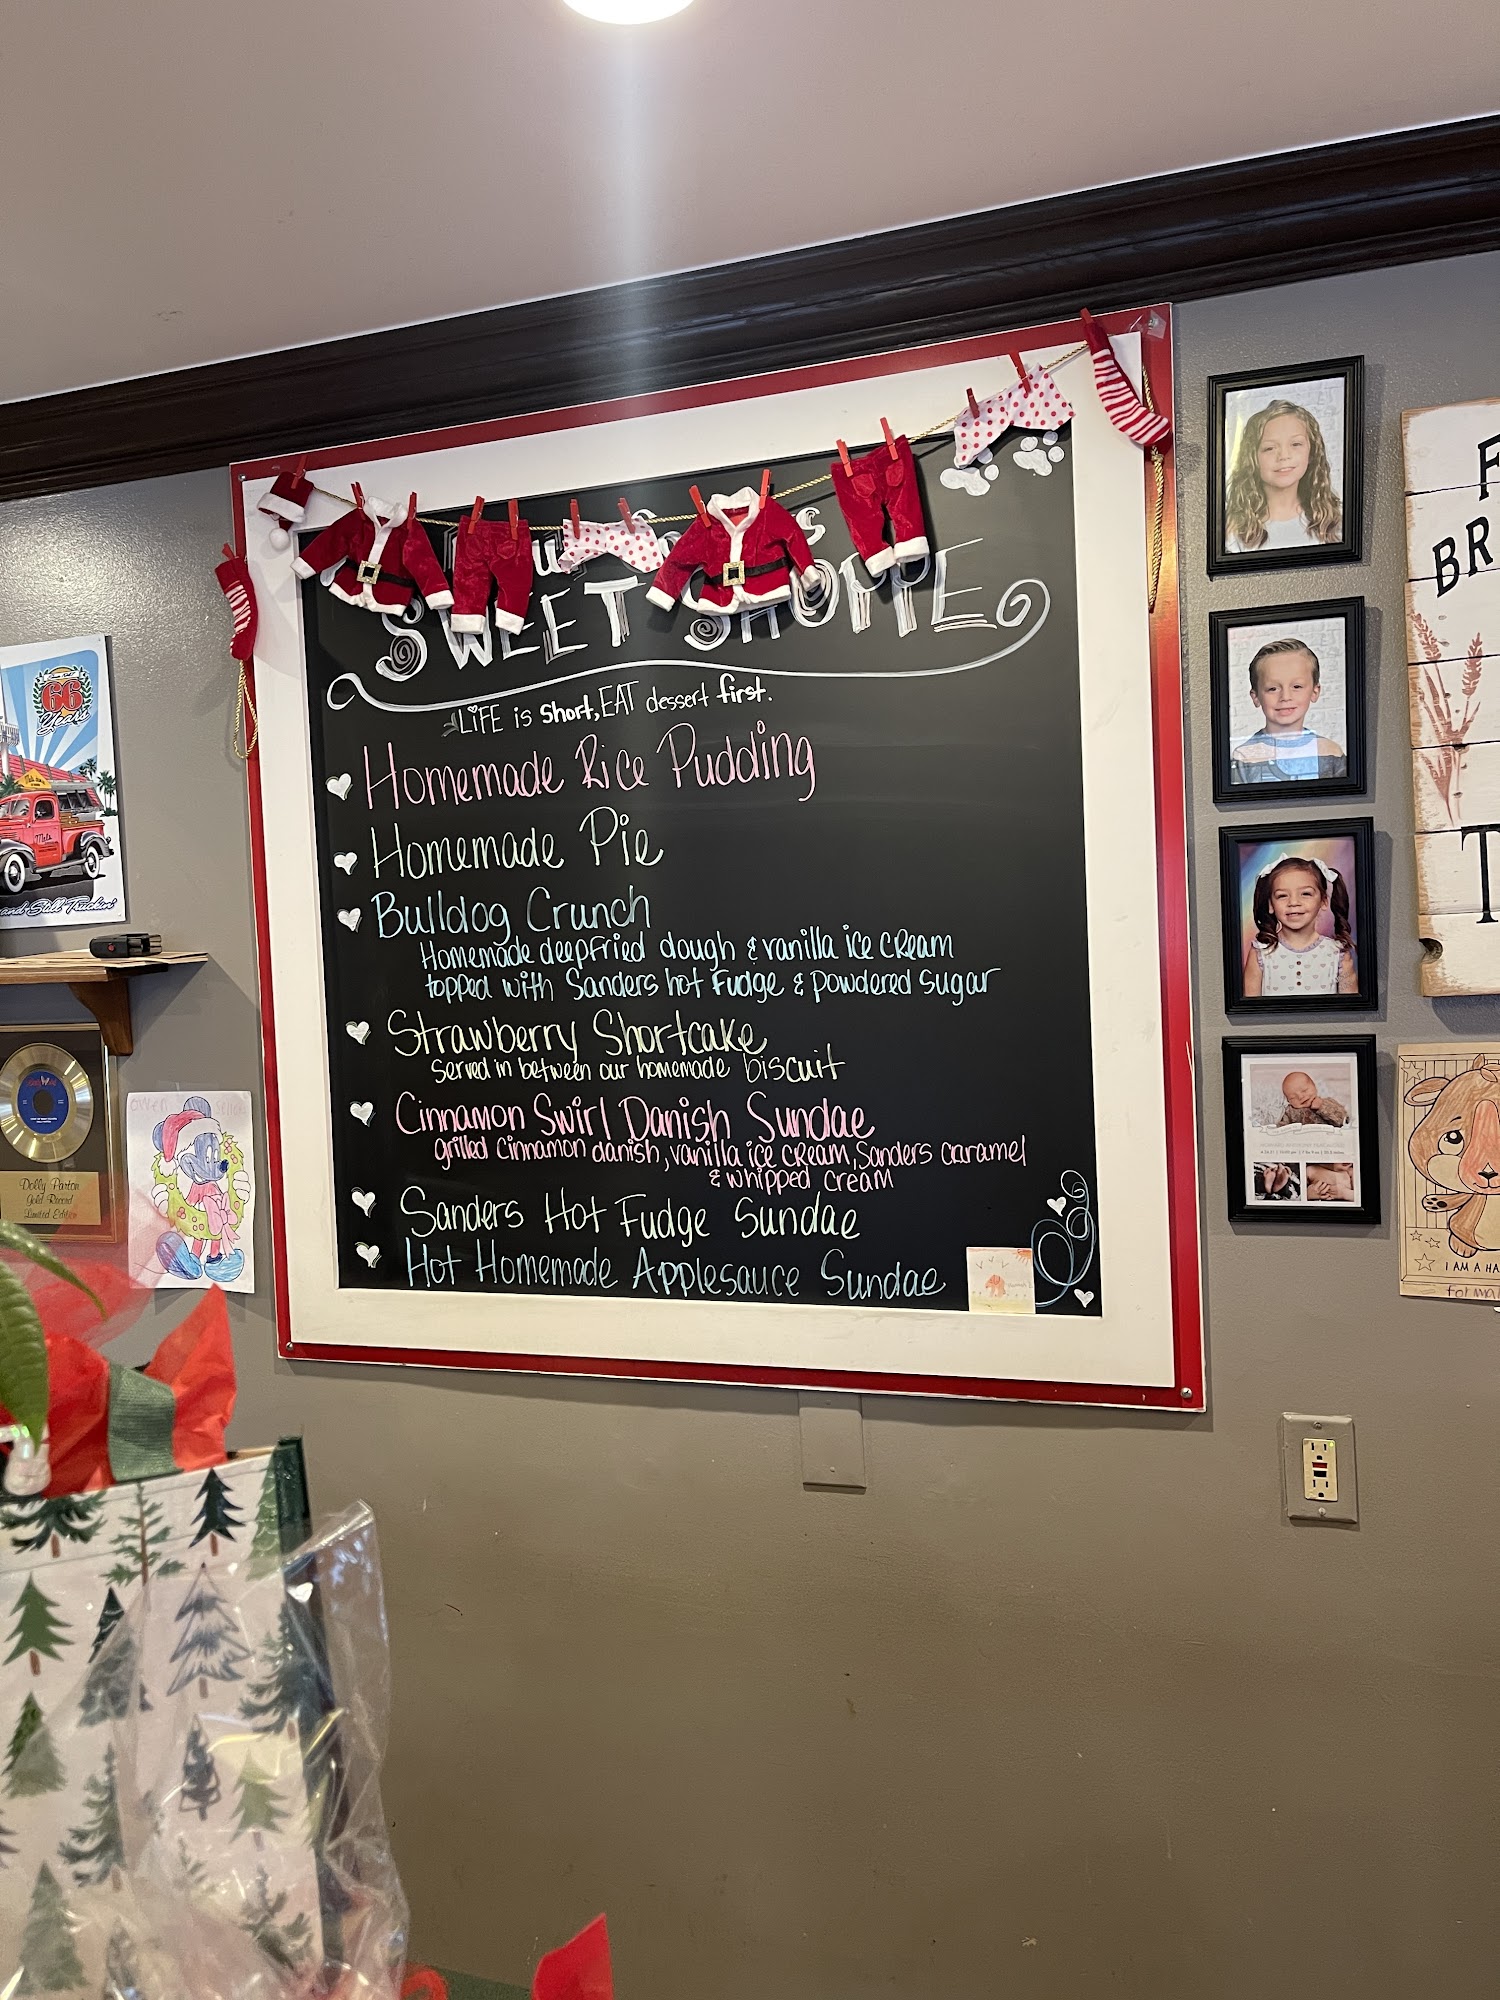 SWEET SHOPPE
LIFE is Short, EAT dessert first.
Homemade Rice Pudding
Homemade Pie
Bulldog Crunch
Homemade deepfried dough & vanilla ice cream
topped with Sanders hot fudge & powdered sugar
Strawberry Shortcake
served in between our homemade biscuit
Cinnamon Swirl Danish Sundae
grilled cinnamon danish, vanilla ice cream, Sanders caramel
& whipped cream
Sanders Hot Fudge Sundae
Hot Homemade Applesauce Sundae
66
Years
Mel's
and Still Truckin'
Dolly Parton
Gold Record
Limited Edition
owen
BR
I AM A HA